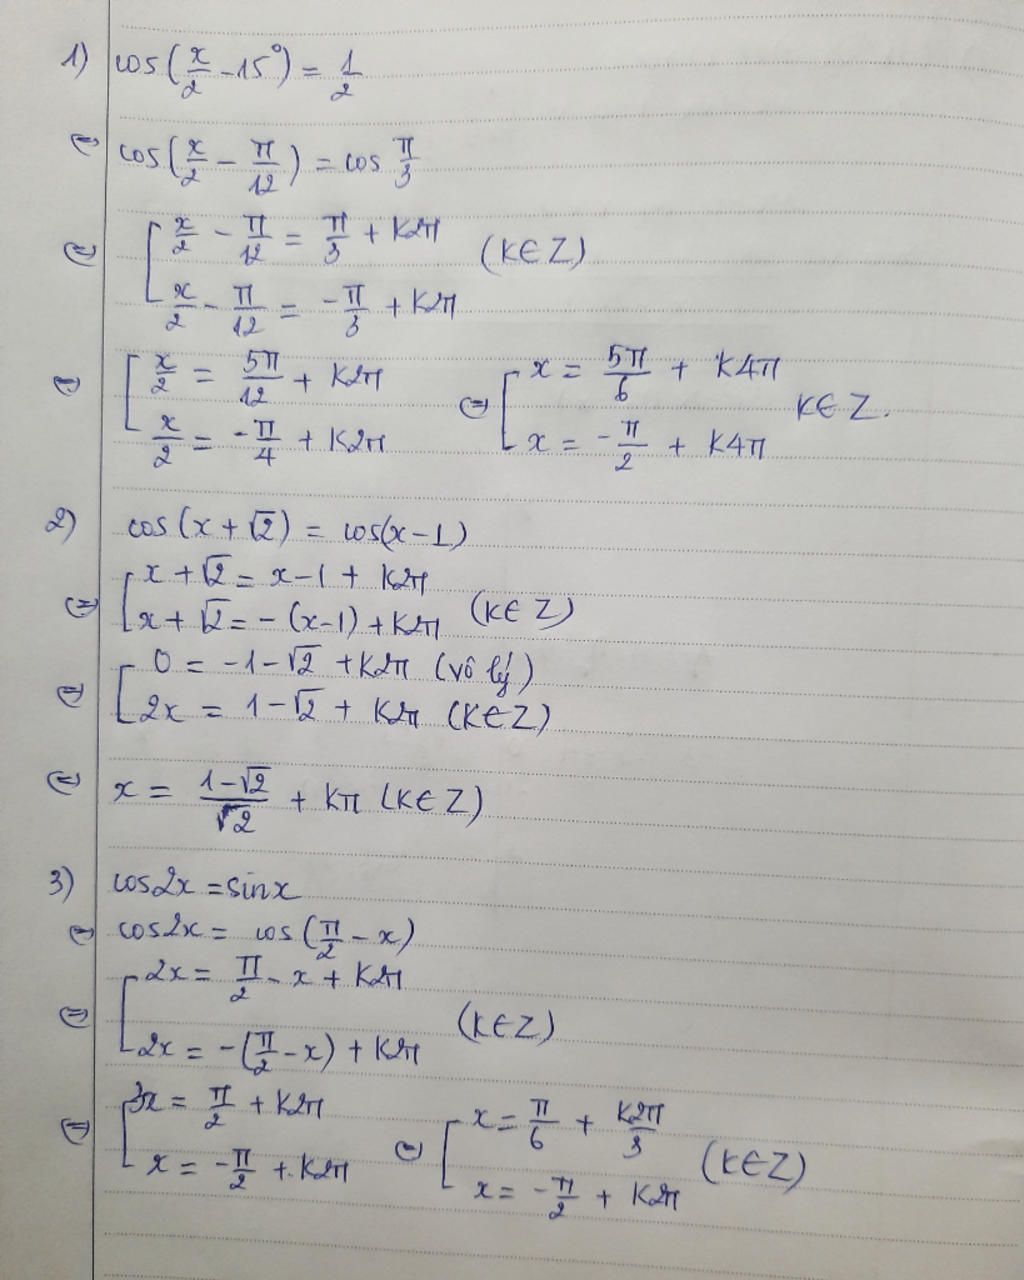 1) cos(x/2 - 15°) = 1/2
⇔ cos(x/2 - π/12) = cos π/3
⇔ [ x/2 - π/12 = π/3 + K2π (K∈Z)
x/2 - π/12 = -π/3 + K2π
⇔ [ x/2 = 5π/12 + K2π ⇔ [ x = 5π/6 + K4π K∈Z.
x/2 = -π/4 + K2π x = -π/2 + K4π
2) cos(x + √2) = cos(x - 1)
⇔ [ x + √2 = x - 1 + K2π (K∈Z)
x + √2 = -(x-1) + K2π
⇔ [ 0 = -1 - √2 + K2π (vô lý)
2x = 1 - √2 + K2π (K∈Z)
⇔ x = (1-√2)/√2 + Kπ (K∈Z)
3) cos2x = sinx
⇔ cos2x = cos(π/2 - x)
⇔ [ 2x = π/2 - x + K2π (K∈Z)
2x = -(π/2 - x) + K2π
⇔ [ 3x = π/2 + K2π ⇔ [ x = π/6 + K2π/3 (K∈Z)
x = -π/2 + K2π x = -π/2 + K2π